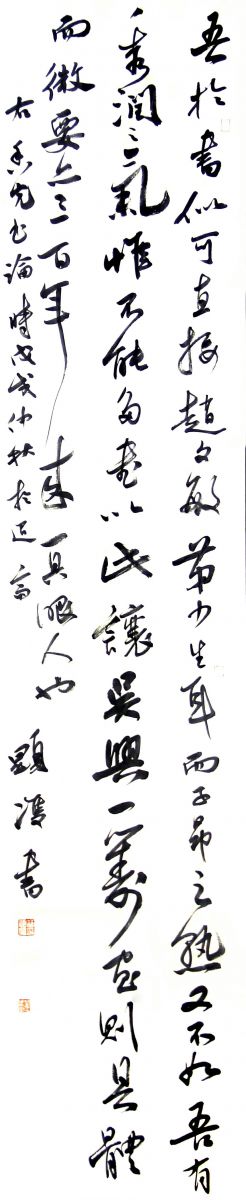 吾於書似可直接趙文敏第少生耳而子昂之熟又不如吾有
秀潤之氣惟不能多書以此讓吳興一籌畫則具體
而微要亦三百年來一具眼人也
右香光書論時戊戌仲秋於
顯書